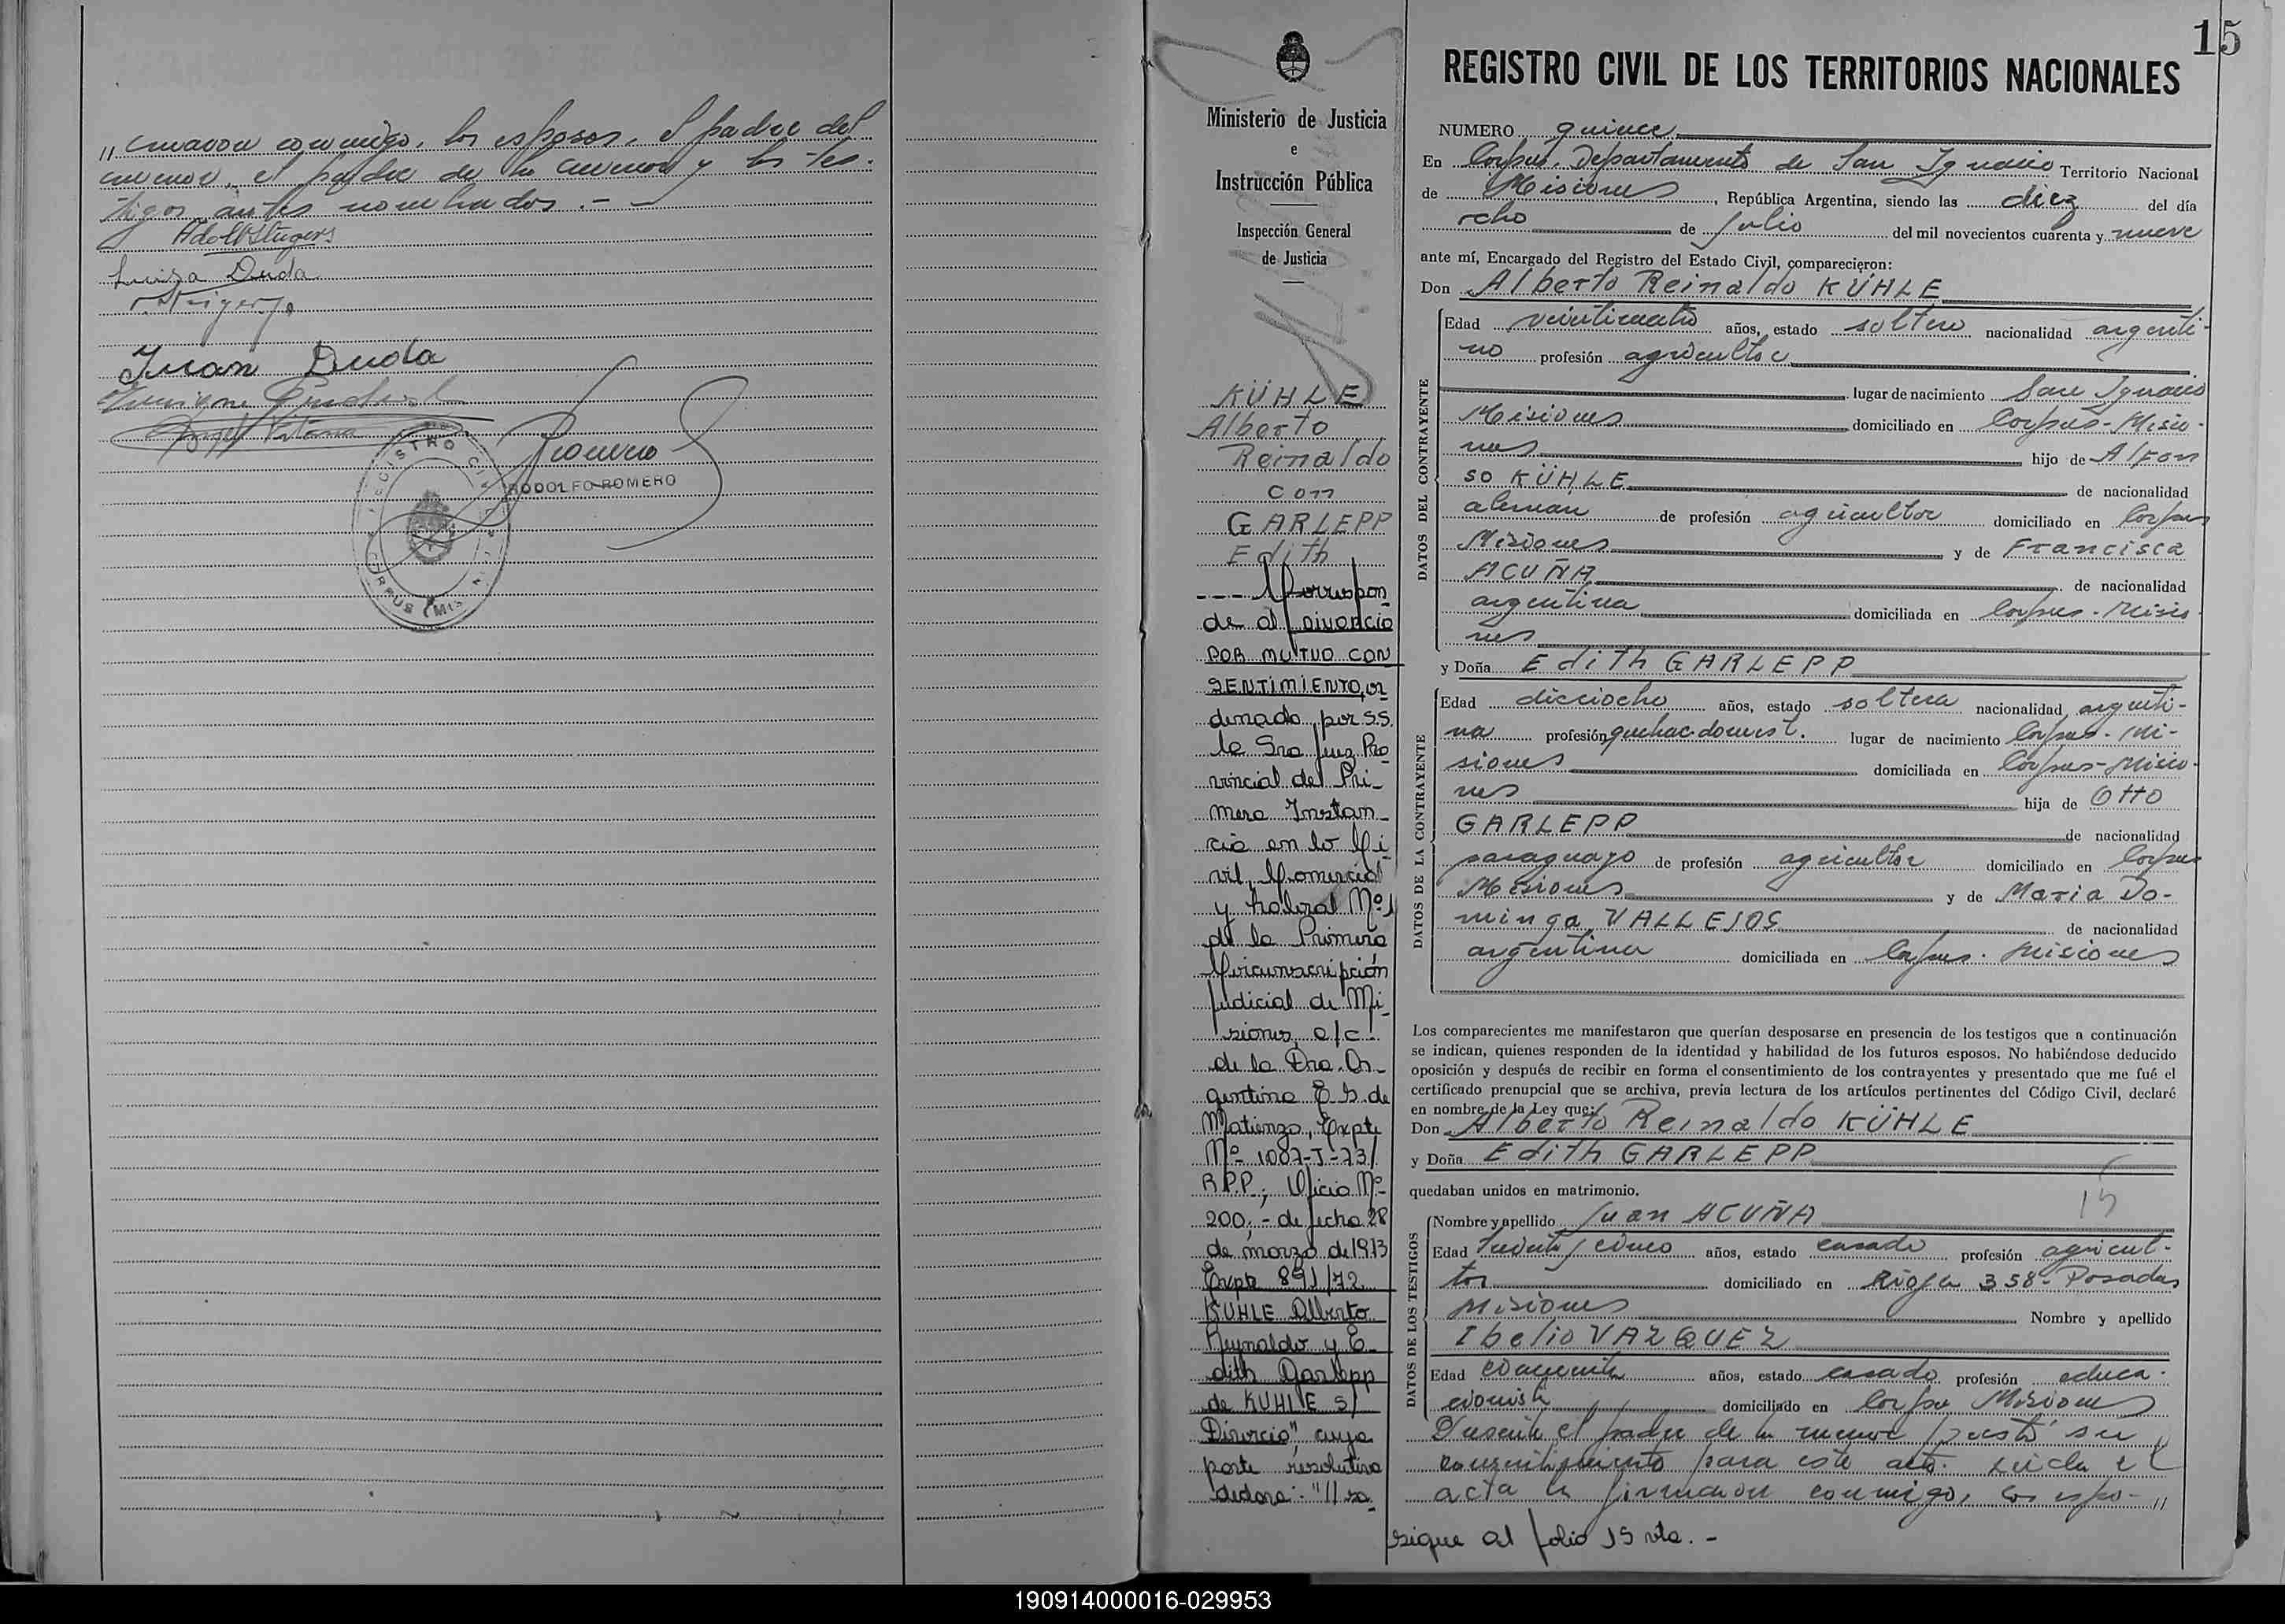 " firmaron conmigo, los esposos, el padre del
menor, el padre de la menor y los tes-
tigos antes nombrados.-
Adolf Steigers
Luisa Duda
Juan Duda
Angel Vitana
REGISTRO CIVIL
CORPUS (MIS
Romero
RODOLFO ROMERO
15
Ministerio de Justicia
e
Instrucción Pública
Inspección General
de Justicia
KÜHLE
Alberto
Reinaldo
con
GARLEPP
Edith
--- Correspon
de al Divorcio
POR MUTUO CON
SENTIMIENTO, or
denado por S.S.
la Sra Juez Pro
vincial de Pri-
mera Instan-
cia en lo Ci
vil, Comercial
y Laboral Nº1
de la Primera
Circunscripción
Judicial de Mi-
siones, a/c
de la Dra. Ar-
gentina E. S. de
Matienzo, Expte
Nº 1087-J-73/
R.P.P.; Oficio Nº
200.- de fecha 28
de marzo de 1973
Expte 891/72
KUHLE Alberto
Reynaldo y E-
dith Garlepp
de KUHLE S/
Divorcio", cuya
parte resolutiva
dedara: "// sa-
REGISTRO CIVIL DE LOS TERRITORIOS NACIONALES
NUMERO quince
En Corpus, Departamento de San Ignacio Territorio Nacional
de Misiones, República Argentina, siendo las diez del día
ocho de julio del mil novecientos cuarenta y nueve
ante mí, Encargado del Registro del Estado Civil, comparecieron:
Don Alberto Reinaldo KÜHLE
DATOS DEL CONTRAYENTE
Edad veinticuatro años, estado soltero nacionalidad argenti-
no profesión agricultor
lugar de nacimiento San Ignacio
Misiones domiciliado en Corpus-Misio-
nes hijo de Alfon
so KÜHLE de nacionalidad
aleman de profesión agricultor domiciliado en Corpus
Misiones y de Francisca
ACUÑA de nacionalidad
argentina domiciliada en Corpus-Misio-
nes
y Doña Edith GARLEPP
DATOS DE LA CONTRAYENTE
Edad dieciocho años, estado soltera nacionalidad argenti-
na profesión quehac. domest. lugar de nacimiento Corpus-Mi-
siones domiciliada en Corpus-Misio-
nes hija de Otto
GARLEPP de nacionalidad
paraguayo de profesión agricultor domiciliado en Corpus
Misiones y de Maria Do-
minga VALLEJOS de nacionalidad
argentina domiciliada en Corpus. Misiones
Los comparecientes me manifestaron que querían desposarse en presencia de los testigos que a continuación
se indican, quienes responden de la identidad y habilidad de los futuros esposos. No habiéndose deducido
oposición y después de recibir en forma el consentimiento de los contrayentes y presentado que me fué el
certificado prenupcial que se archiva, previa lectura de los artículos pertinentes del Código Civil, declaré
en nombre de la Ley que:
Don Alberto Reinaldo KÜHLE
y Doña Edith GARLEPP
quedaban unidos en matrimonio.
15
DATOS DE LOS TESTIGOS
Nombre y apellido Juan ACUÑA
Edad treinta y cinco años, estado casado profesión agricul-
tor domiciliado en Rioja 358-Posadas
Misiones Nombre y apellido
Ibelio VAZQUEZ
Edad cincuenta años, estado casado profesión educa-
cionista domiciliado en Corpus Misiones
Presente el padre de la menor prestó su
consentimiento para este acto. Leida el
acta la firmaron conmigo, los espo-"
sigue al folio 15 vta.-
190914000016-029953